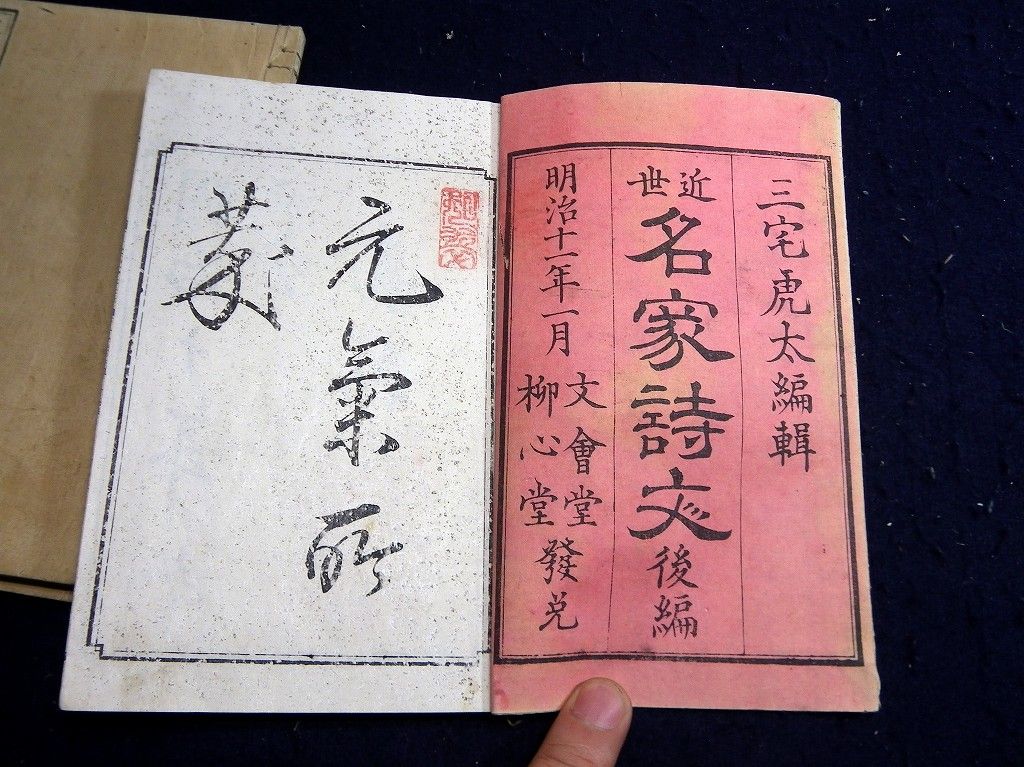 三宅虎太編輯
近世
名家詩文後編
明治十一年一月
文會堂
柳心堂
發兌
元氣所